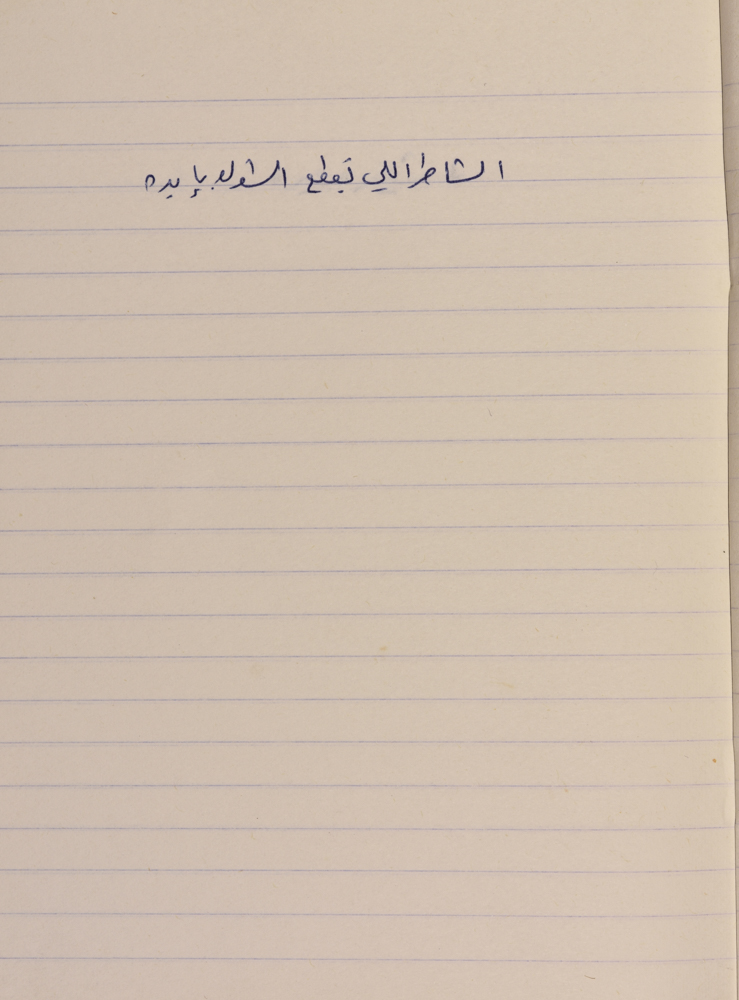 الشاطر اللي بقطع الشوك بإيده